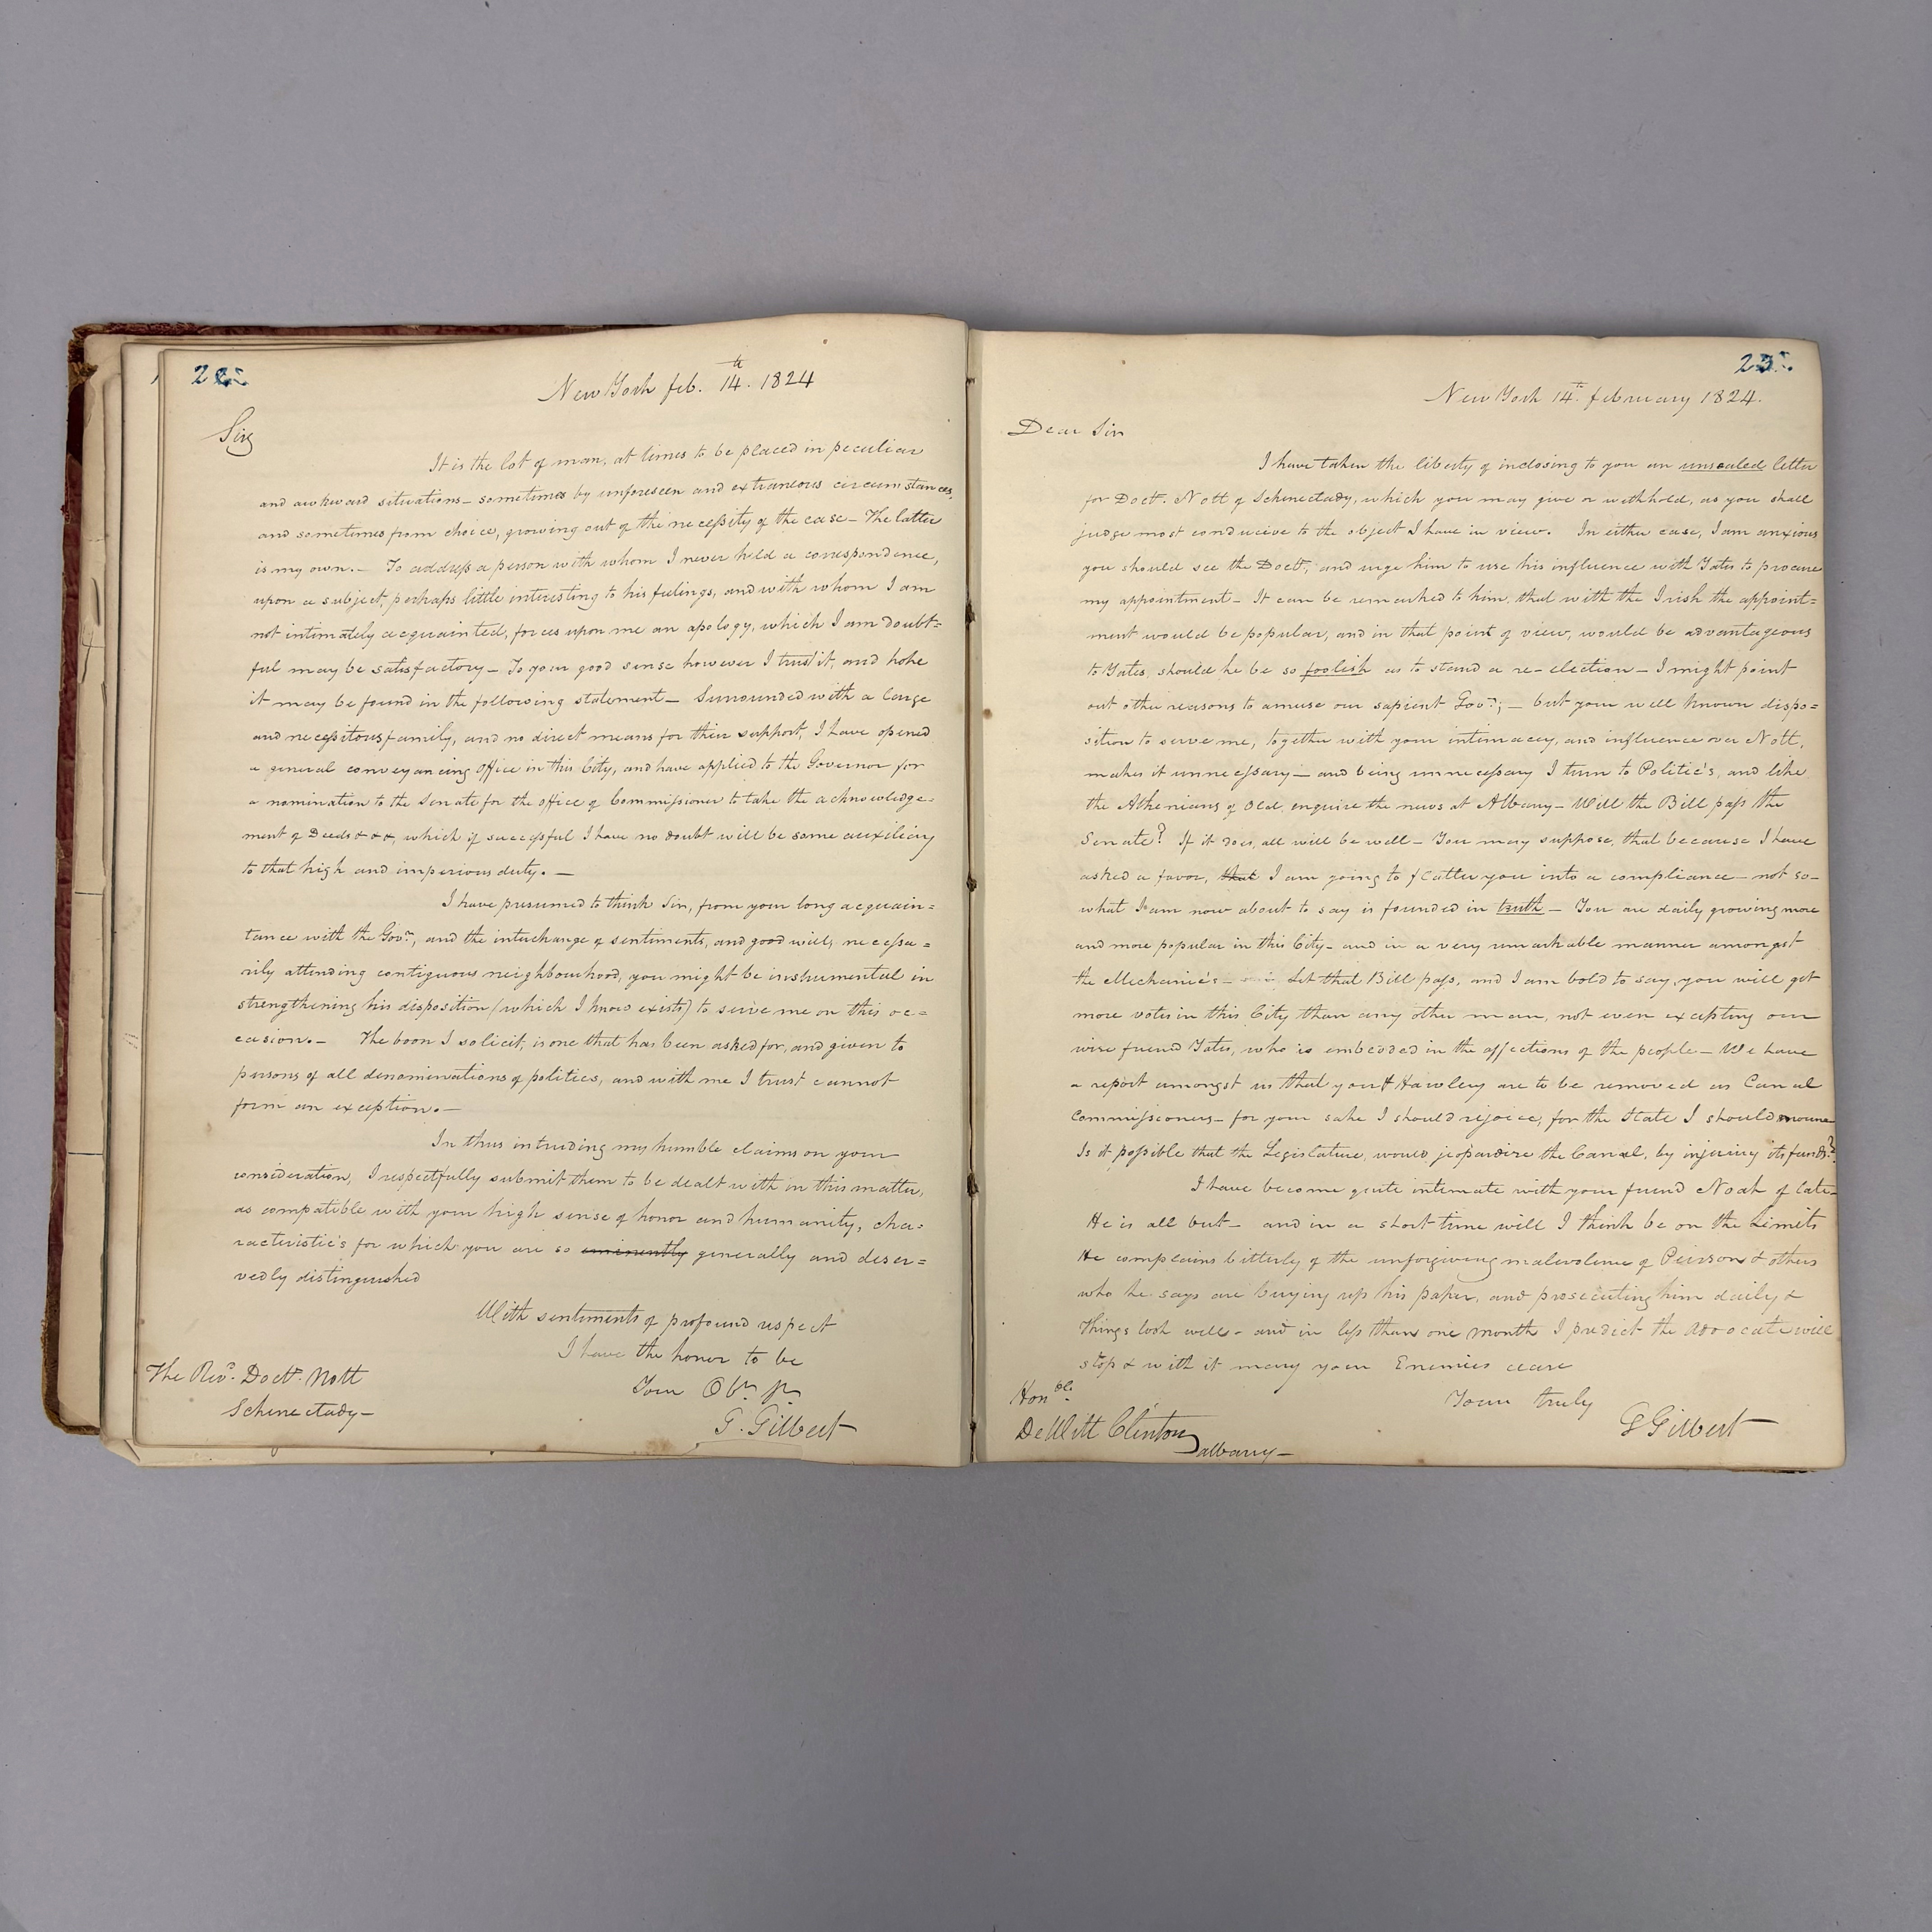 22
New York feb. 14th. 1824
Sir,
It is the lot of man, at times to be placed in peculiar
and awkward situations – sometimes by unforeseen and extraneous circumstances,
and sometimes from choice, growing out of the necessity of the case – The latter
is my own. – To address a person with whom I never held a correspondence,
upon a subject, perhaps little interesting to his feelings, and with whom I am
not intimately acquainted, forces upon me an apology, which I am doubt=
ful may be satisfactory – To your good sense however I trust it, and hope
it may be found in the following statement – Surrounded with a large
and necessitous family, and no direct means for their support, I have opened
a general conveyancing office in this City, and have applied to the Governor for
a nomination to the Senate for the office of Commissioner to take the acknowledge=
ment of Deeds & & &, which if successful I have no doubt will be some auxiliary
to that high and imperious duty. –
I have presumed to think Sir, from your long acquain=
tance with the Govr., and the interchange of sentiments, and good will, necessa=
rily attending contiguous neighbourhood, you might be instrumental in
strengthening his disposition (which I know exists) to serve me on this oc=
casion. – The boon I solicit, is one that has been asked for, and given to
persons of all denominations of politics, and with me I trust cannot
form an exception. –
In thus intruding my humble claims on your
consideration, I respectfully submit them to be dealt with in this matter,
as compatible with your high sense of honor and humanity, cha=
racteristic's for which you are so eminently generally and deser=
vedly distinguished
With sentiments of profound respect
I have the honor to be
Your Obt. St.
G. Gilbert
The Revd. Doctr. Nott
Schenectady –
23
New York 14th. february 1824.
Dear Sir
I have taken the liberty of inclosing to you an unsealed letter
for Doctr. Nott of Schenectady, which you may give or withhold, as you shall
judge most conducive to the object I have in view. In either case, I am anxious
you should see the Doctr, and urge him to use his influence with Yates to procure
my appointment – It can be remarked to him, that with the Irish the appoint=
ment would be popular, and in that point of view, would be advantageous
to Yates, should he be so foolish as to stand a re-election – I might point
out other reasons to amuse our sapient Govr; – but your well known dispo=
sition to serve me, together with your intimacy, and influence over Nott,
makes it unnecessary – and being unnecessary I turn to Politic's, and like
the Athenians of old, enquire the news at Albany – Will the Bill pass the
Senate? If it does, all will be well – You may suppose, that because I have
asked a favor, that I am going to flatter you into a compliance – not so –
what I am now about to say is founded in truth – You are daily growing more
and more popular in this City – and in a very remarkable manner amongst
the Mechanic's – Let that Bill pass, and I am bold to say, you will get
more votes in this City than any other man, not even excepting our
wise friend Yates, who is embedded in the affections of the people – We have
a report amongst us that you & Hawley are to be removed as Canal
Commissioners – for your sake I should rejoice, for the State I should mourn
Is it possible that the Legislature, would jeopardize the Canal, by injuring its funds?
I have become quite intimate with your friend Noah of late –
He is all but – and in a short time will I think be on the Limits
He complains bitterly of the unforgiving malevolence of Peirson & others
who he says are buying up his paper, and prosecuting him daily &
things look well – and in less than one month I predict the Advocate will
stop & with it many your Enemies cease
Yours truly
G Gilbert
Honble.
DeWitt Clinton
albany –